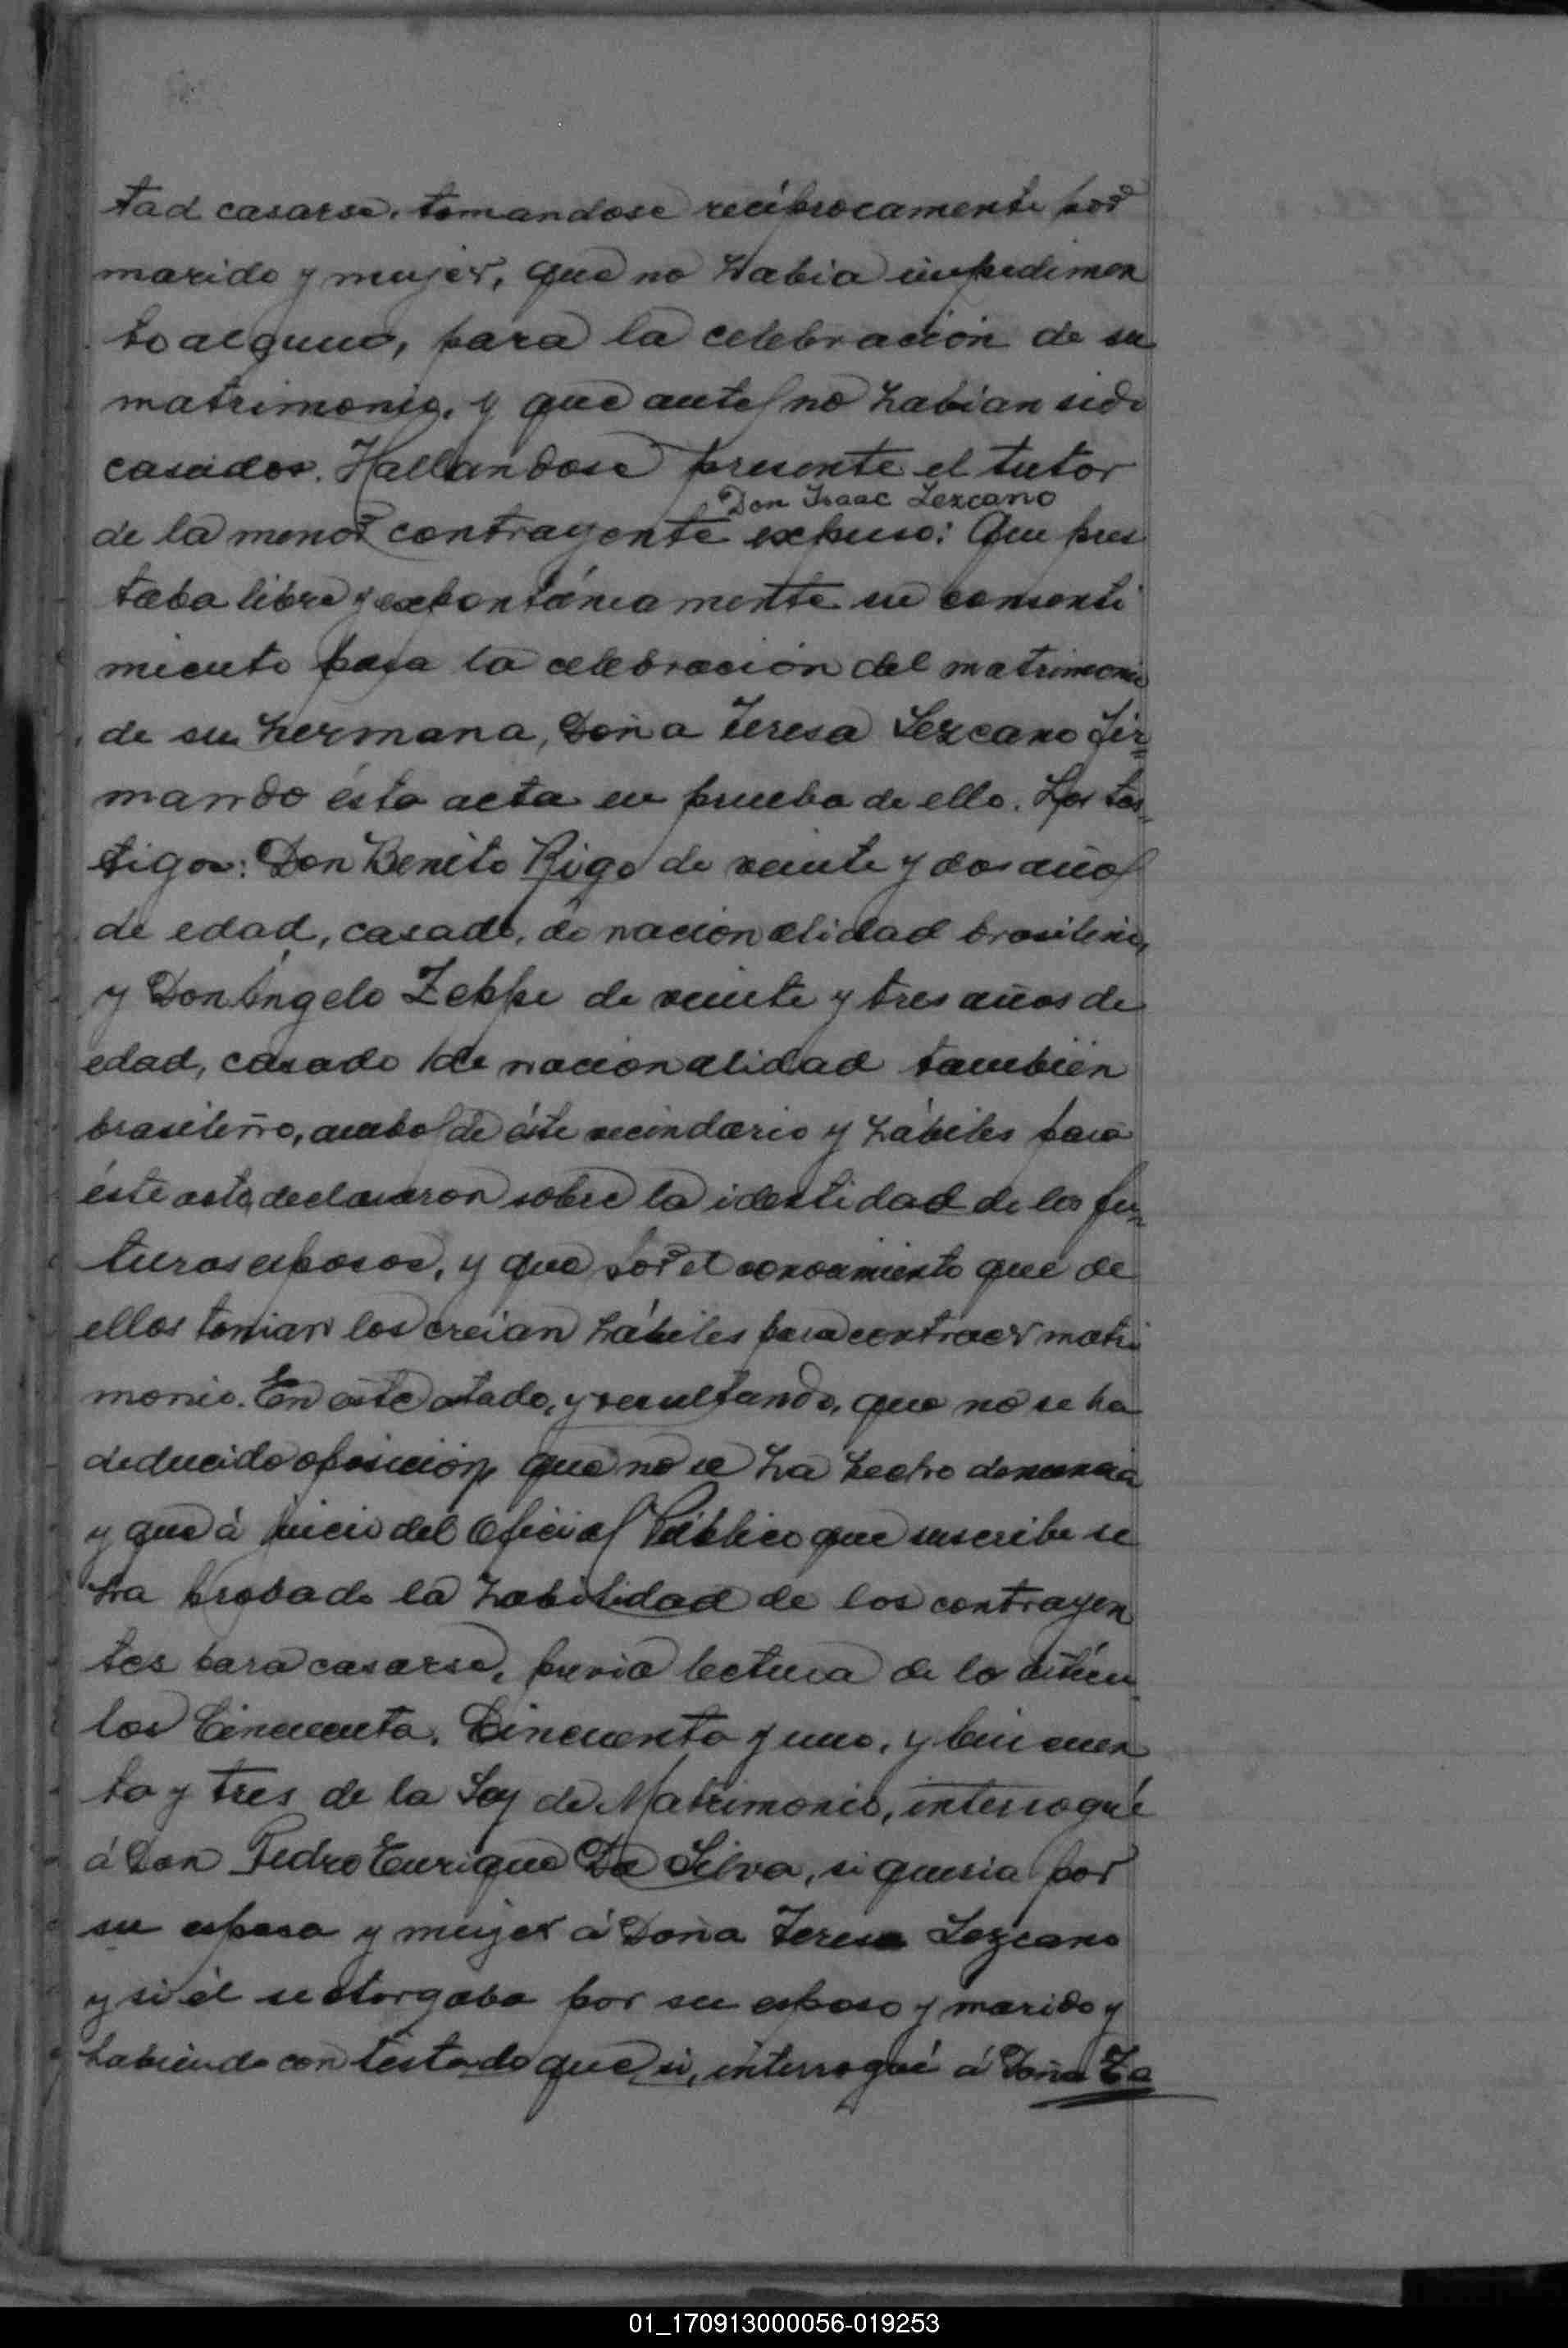 tad casarse, tomandose recíprocamente por
marido y mujer, que no habia impedimen
to alguno, para la celebración de su
matrimonio, y que antes no habían sido
casados. Hallandose presente el tutor
Don Isaac Lezcano
de la menor contrayente expuso: Que pres
taba libre y expontáneamente su consenti
miento para la celebración del matrimonio
de su hermana, Doña Teresa Lezcano fir=
mando ésta acta en prueba de ello. Los tes=
tigos: Don Benito Rigo de veinte y dos años
de edad, casado, de nacionalidad brasileño,
y Don Ángelo Zeppe de veinte y tres años de
edad, casado de nacionalidad también
brasileño, ambos de éste vecindario y hábiles para
éste acto, declararon sobre la identidad de los fu=
turos esposos, y que por el conocimiento que de
ellos tenian los creían hábiles para contraer matri
monio. En este estado, y resultando, que no se ha
deducido oposición, que no se ha hecho denuncia
y que á juicio del Oficial Público que suscribe se
ha probado la habilidad de los contrayen
tes para casarse, previa lectura de los artícu
los Cincuenta, Cincuenta y uno, y Cincuen
ta y tres de la Ley de Matrimonio, interrogué
á Don Pedro Enrique Da Silva, si queria por
su esposa y mujer á Doña Teresa Lezcano
y si él se otorgaba por su esposo y marido y
habiendo contestado que si, interrogué á Doña Te
01_170913000056-019253